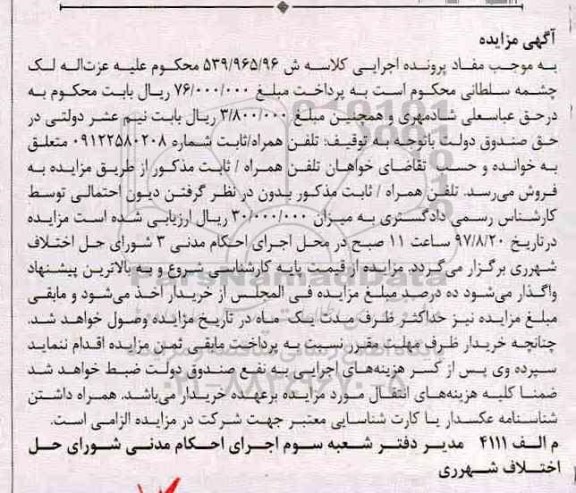 آگهی مزایده
به موجب مفاد پرونده اجرایی کلاسه ش ۵۳۹/۹۶۵/۹۶ محکوم علیه عزت‌اله لک
چشمه سلطانی محکوم است به پرداخت مبلغ ۷۶/۰۰۰/۰۰۰ ریال بابت محکوم به
درحق عباسعلی شادمهری و همچنین مبلغ ۳/۸۰۰/۰۰۰ ریال بابت نیم عشر دولتی در
حق صندوق دولت باتوجه به توقیف: تلفن همراه/ثابت شماره ۰۹۱۲۲۵۸۰۲۰۸ متعلق
به خوانده و حسب تقاضای خواهان تلفن همراه / ثابت مذکور از طریق مزایده به
فروش می‌رسد. تلفن همراه / ثابت مذکور بدون در نظر گرفتن دیون احتمالی توسط
کارشناس رسمی دادگستری به میزان ۳۰/۰۰۰/۰۰۰ ریال ارزیابی شده است مزایده
درتاریخ ۹۷/۸/۲۰ ساعت ۱۱ صبح در محل اجرای احکام مدنی ۳ شورای حل اختلاف
شهرری برگزار می‌گردد. مزایده از قیمت پایه کارشناسی شروع و به بالاترین پیشنهاد
واگذار می‌شود ده درصد مبلغ مزایده فی المجلس از خریدار اخذ می‌شود و مابقی
مبلغ مزایده نیز حداکثر ظرف مدت یک ماه در تاریخ مزایده وصول خواهد شد.
چنانچه خریدار ظرف مهلت مقرر نسبت به پرداخت مابقی ثمن مزایده اقدام ننماید
سپرده وی پس از کسر هزینه‌های اجرایی به نفع صندوق دولت ضبط خواهد شد
ضمنا کلیه هزینه‌های انتقال مورد مزایده برعهده خریدار می‌باشد. همراه داشتن
شناسنامه عکسدار یا کارت شناسایی معتبر جهت شرکت در مزایده الزامی است.
م الف ۴۱۱۱ مدیر دفتر شعبه سوم اجرای احکام مدنی شورای حل
اختلاف شهرری
ParsNamadData
۰۲۱-۸۸۳۴۹۶۷۰-۵